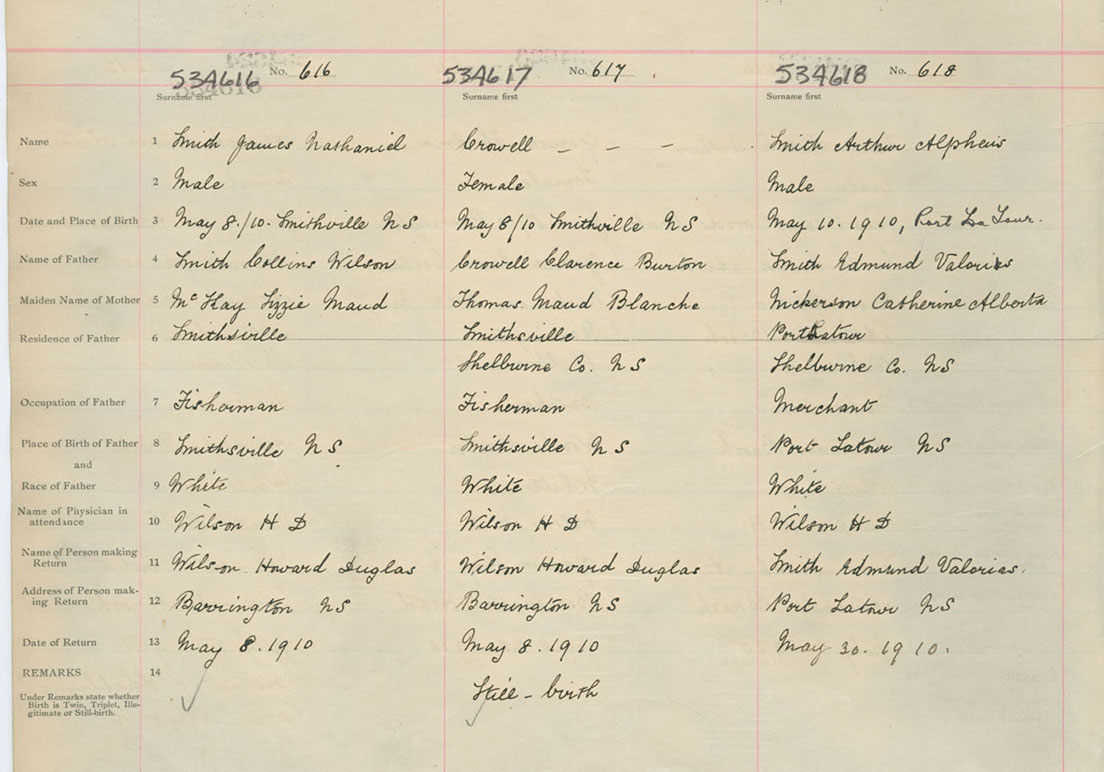 534616 No. 616 534617 No. 617 534618 No. 618
Surname first Surname first Surname first
Name 1 Smith James Nathaniel Crowell – – – Smith Arthur Alpheus
Sex 2 Male Female Male
Date and Place of Birth 3 May 8./10. Smithville NS May 8/10 Smithville NS May 10. 1910, Port La Tour.
Name of Father 4 Smith Collins Wilson Crowell Clarence Burton Smith Edmund Valorias
Maiden Name of Mother 5 McKay Lizzie Maud Thomas Maud Blanche Nickerson Catherine Alberta
Residence of Father 6 Smithsville Smithsville Port Latour
Shelburne Co. NS Shelburne Co. NS
Occupation of Father 7 Fisherman Fisherman Merchant
Place of Birth of Father 8 Smithsville NS Smithsville NS Port Latour NS
and
Race of Father 9 White White White
Name of Physician in
attendance 10 Wilson H D Wilson H D Wilson H D
Name of Person making
Return 11 Wilson. Howard Duglas Wilson Howard Duglas Smith Edmund Valorias.
Address of Person mak-
ing Return 12 Barrington NS Barrington NS Port Latour NS
Date of Return 13 May 8. 1910 May 8. 1910 May 30. 1910.
REMARKS 14
Under Remarks state whether
Birth is Twin, Triplet, Ille-
gitimate or Still-birth.
Still - birth